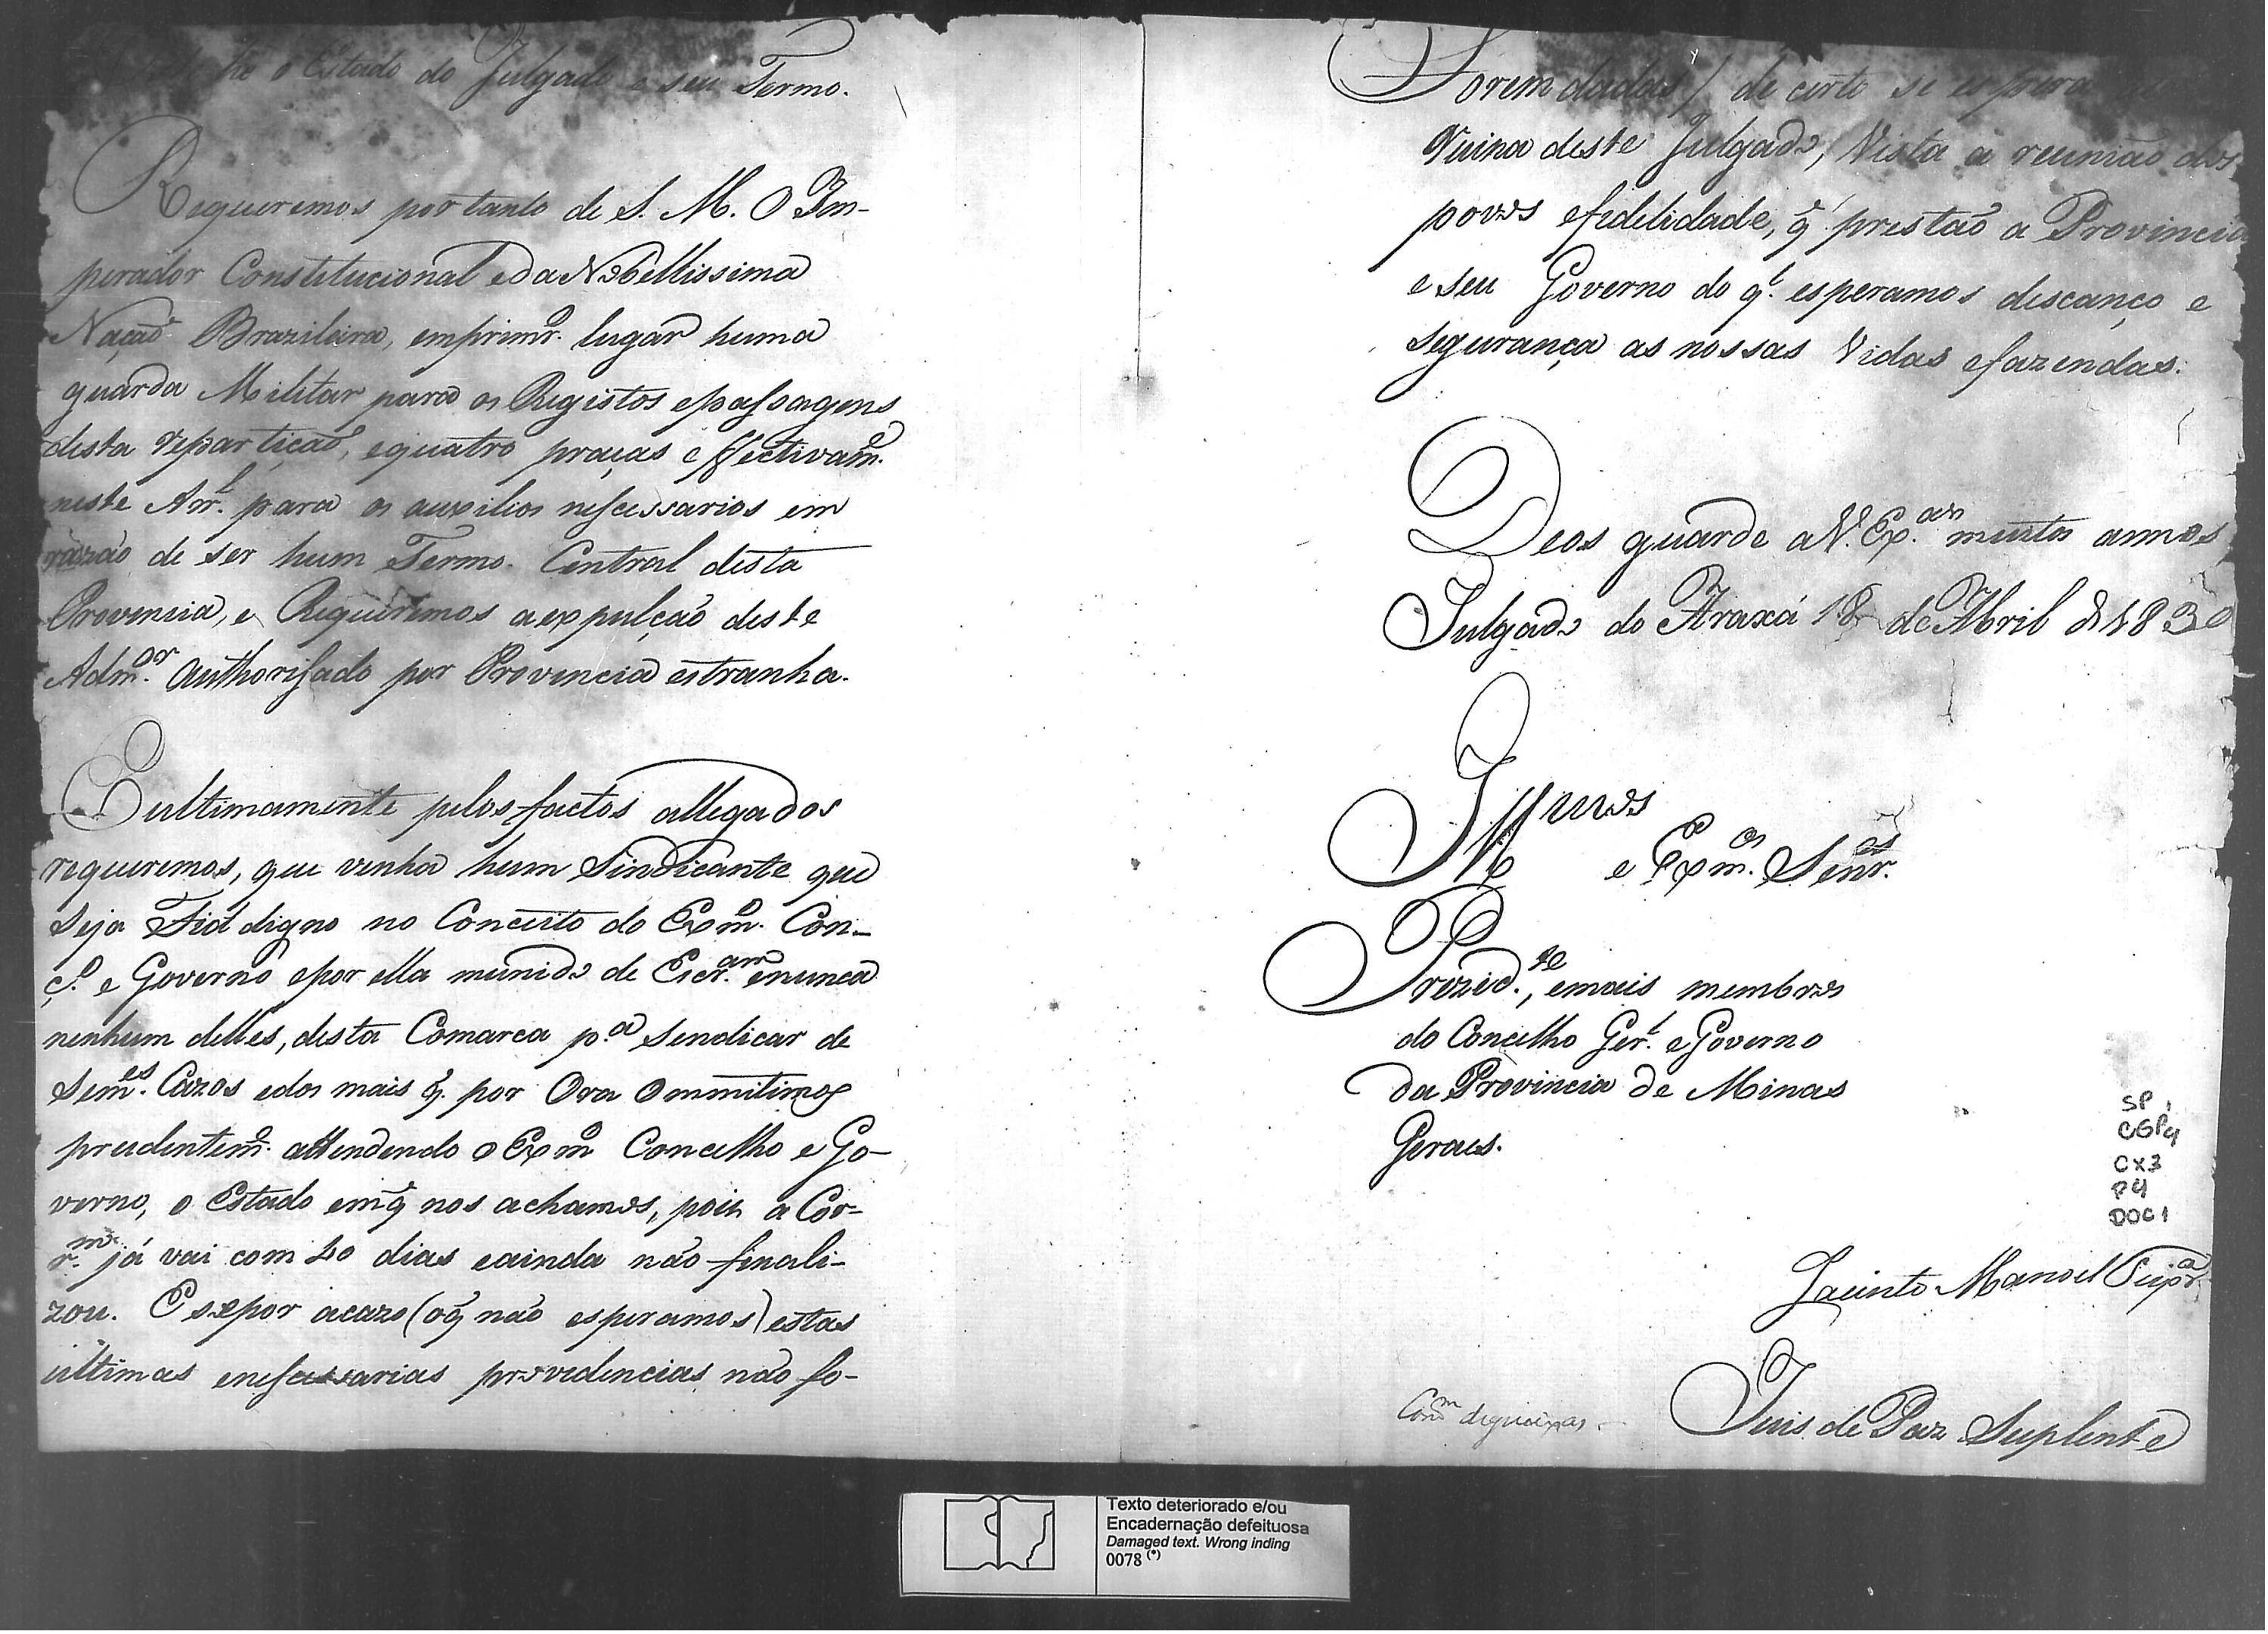 he o Estado do Julgado e seu Termo.
Requeremos portanto de S. M. O Im-
perador Constitucional eda Nobellissima
Nação Brazileira, emprimr.o lugar huma
guarda Militar para os Registos epassagens
desta repartição, equatro praças effectivam.e
neste Arr.l para os auxilios nescessarios em
razão de ser hum Termo Central desta
Provencia, e Requeremos aexpulção deste
Adm.or Authorisado por Provencia estranha.
E ultimamente pelos factos allegados
requeremos, que venha hum Sindicante que
seja Fiddigno no Conceito do Exm.o Con-
ç.o e Governo epor ella munido de Escr.am enunca
nenhum delles, desta Comarca p.a Sendicar de
Sem.es Cazos edos mais q̃. por Ora Ommitimos
prudentem.e attendendo o Exm.o Concelho e Go-
verno, o Estado emq̃ nos achamos, pois a Cor-
r.m já vai com 40 dias eainda não finali-
zou. Esepor acazo (oq̃ não esperamos) estas
ultimas enescessarias providencias não fo-
Forem dadas) de certo se espera
Ruina deste Julgado, Vista a reunião dos
povos efidelidade, q̃ prestão a Provincia
e seu Governo do q.l esperamos descanço e
segurança as nossas Vidas efazendas.
Deos guarde aV. Ex.as muitos annos
Julgado do Araxá 18 de Abril de 1830
Illmos
e Exm.os Senr.es
Prezid.te, emais membros
do Concelho Ger.l eGoverno
da Provincia de Minas
Geraes.
SP
CGP4
CX3
P4
DOC1
Jacinto Manoel
Juis de Paz Suplente
Texto deteriorado e/ou
Encadernação defeituosa
Damaged text. Wrong inding
0078 (*)